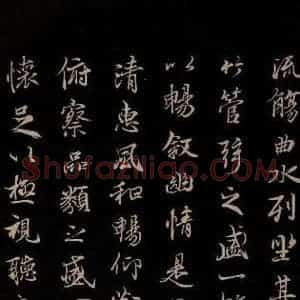 流觴曲水列坐其
竹管弦之盛一
以暢敘幽情是
清惠風和暢仰
俯察品類之盛
懷足以極視聽之
Shufaziliao.COM